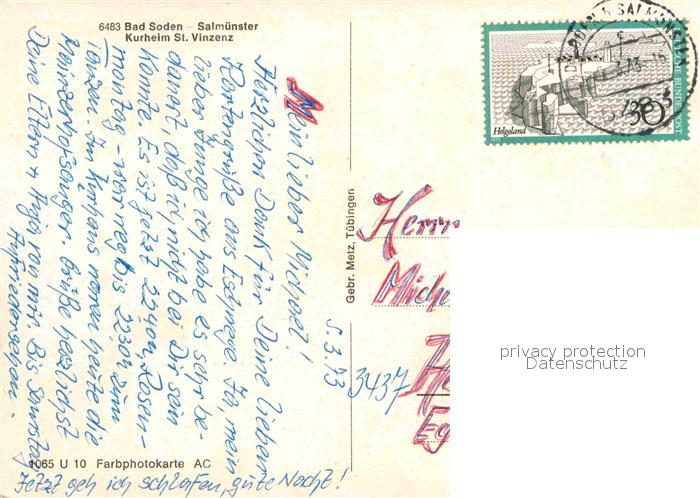 6483 Bad Soden – Salmünster
Kurheim St. Vinzenz
5.3.73
Mein lieber Michael!
Herzlichen Dank für Deine lieben
Kartengrüße aus Eschwege. Ja, mein
lieber Junge ich habe es sehr be-
dauert, daß ich nicht bei Dir sein
konnte. Es ist jetzt 22 Uhr, Rosen-
montag – war weg bis 22 30 zum
Tanzen. Im Kurhaus waren heute die
Mainzer Hofsänger. Grüße herzlichst
Deine Eltern + Anja von mir. Bis Samstag
Aufwiedersehen.
Jetzt geh ich schlafen, gute Nacht!
1065 U 10 Farbphotokarte AC
Gebr. Metz, Tübingen
Helgoland
DEUTSCHE BUNDESPOST
30
Herrn
Mich
3437
privacy protection
Datenschutz